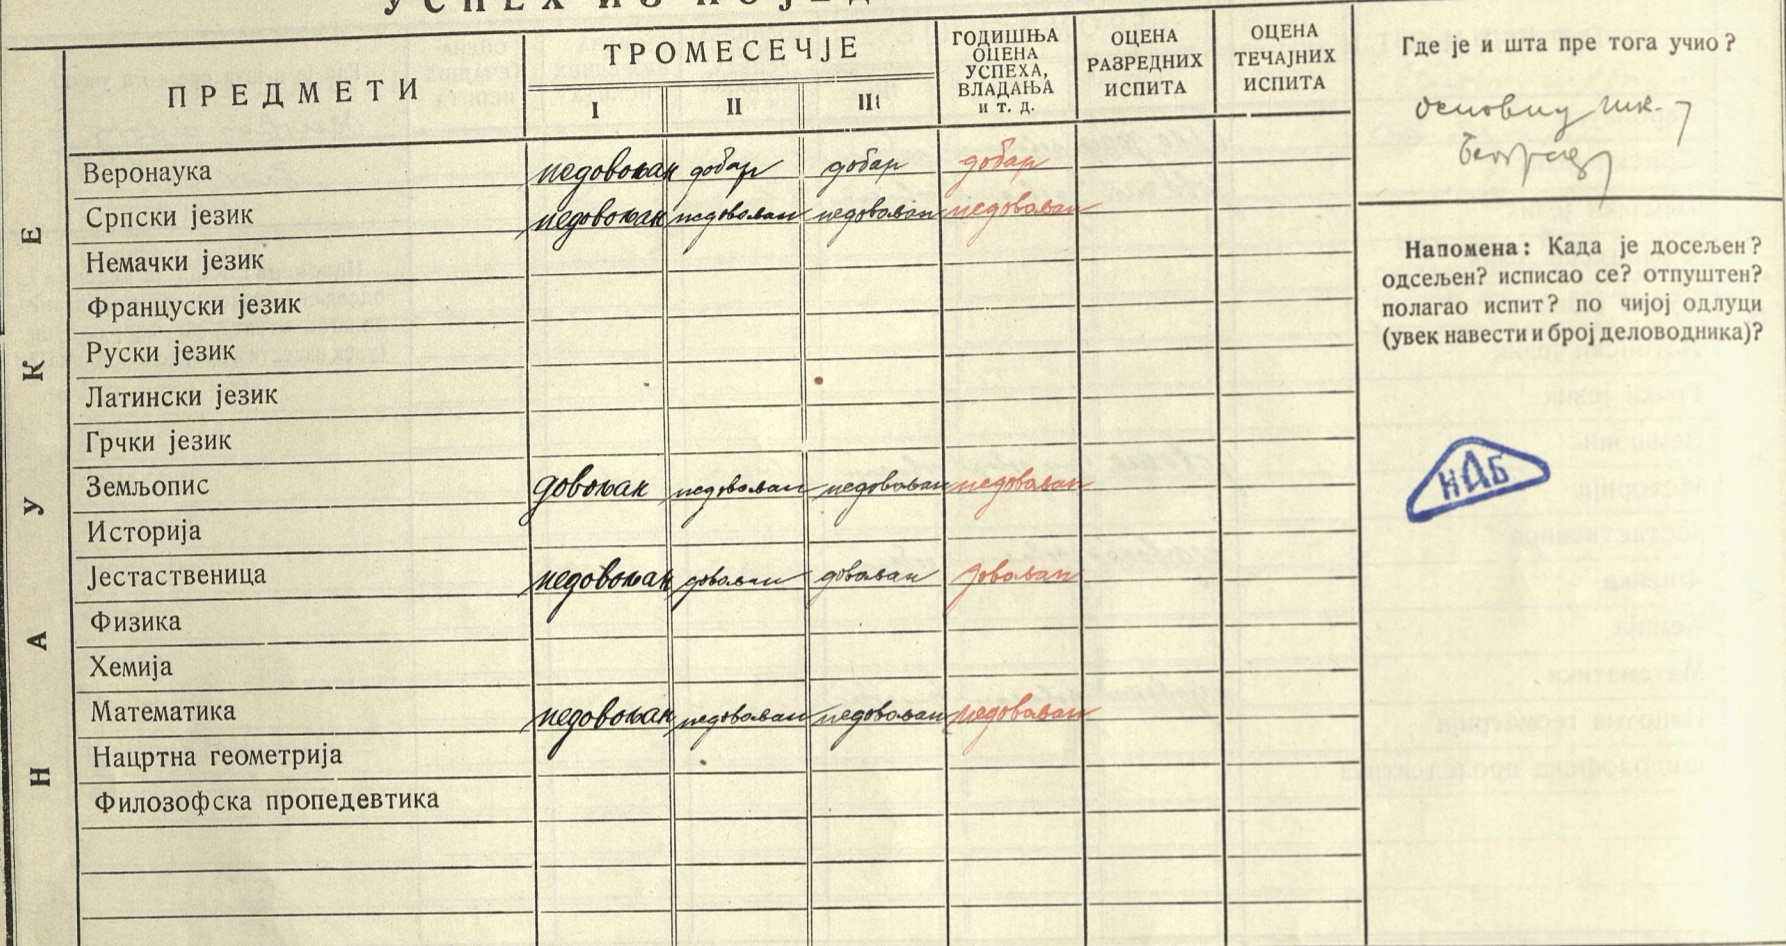 УСПЕХ ИЗ ПОЈЕД
ПРЕДМЕТИ
ТРОМЕСЕЧЈЕ
I II III
ГОДИШЊА
ОЦЕНА
УСПЕХА,
ВЛАДАЊА
и т. д.
ОЦЕНА
РАЗРЕДНИХ
ИСПИТА
ОЦЕНА
ТЕЧАЈНИХ
ИСПИТА
НАУКЕ
Веронаука недовољан добар добар добар
Српски језик недовољан недовољан недовољан недовољан
Немачки језик
Француски језик
Руски језик
Латински језик
Грчки језик
Земљопис довољан недовољан недовољан недовољан
Историја
Јестаственица недовољан довољан довољан довољан
Физика
Хемија
Математика недовољан недовољан недовољан недовољан
Нацртна геометрија
Филозофска пропедевтика
Где је и шта пре тога учио?
основну шк.
Београд
Напомена: Када је досељен?
одсељен? исписао се? отпуштен?
полагао испит? по чијој одлуци
(увек навести и број деловодника)?
НДБ